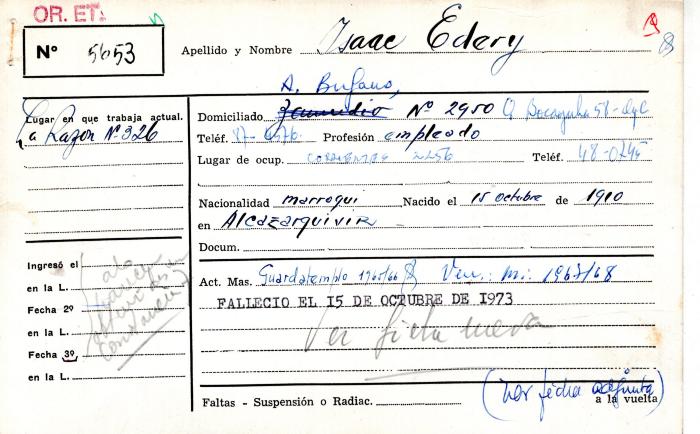 OR. ET.
Nº 5653
Apellido y Nombre Isaac Edery
A. Bufano,
Lugar en que trabaja actual.
La Razon Nº 326
Domiciliado Zamudio Nº 2950
Teléf. Profesión empleado
Lugar de ocup. CORRIENTES 2256 Teléf. 48-0745
Nacionalidad marroqui Nacido el 15 octubre de 1910
en Alcazarquivir
Docum.
Ingresó el
en la L.
Fecha 2º
en la L.
Fecha 3º
en la L.
Act. Mas. Guardatemplo 1965/66 Ven.: M.: 1967/68
FALLECIO EL 15 DE OCTUBRE DE 1973
Ver ficha nueva
(ver ficha adjunta)
Faltas - Suspensión o Radiac. a la vuelta